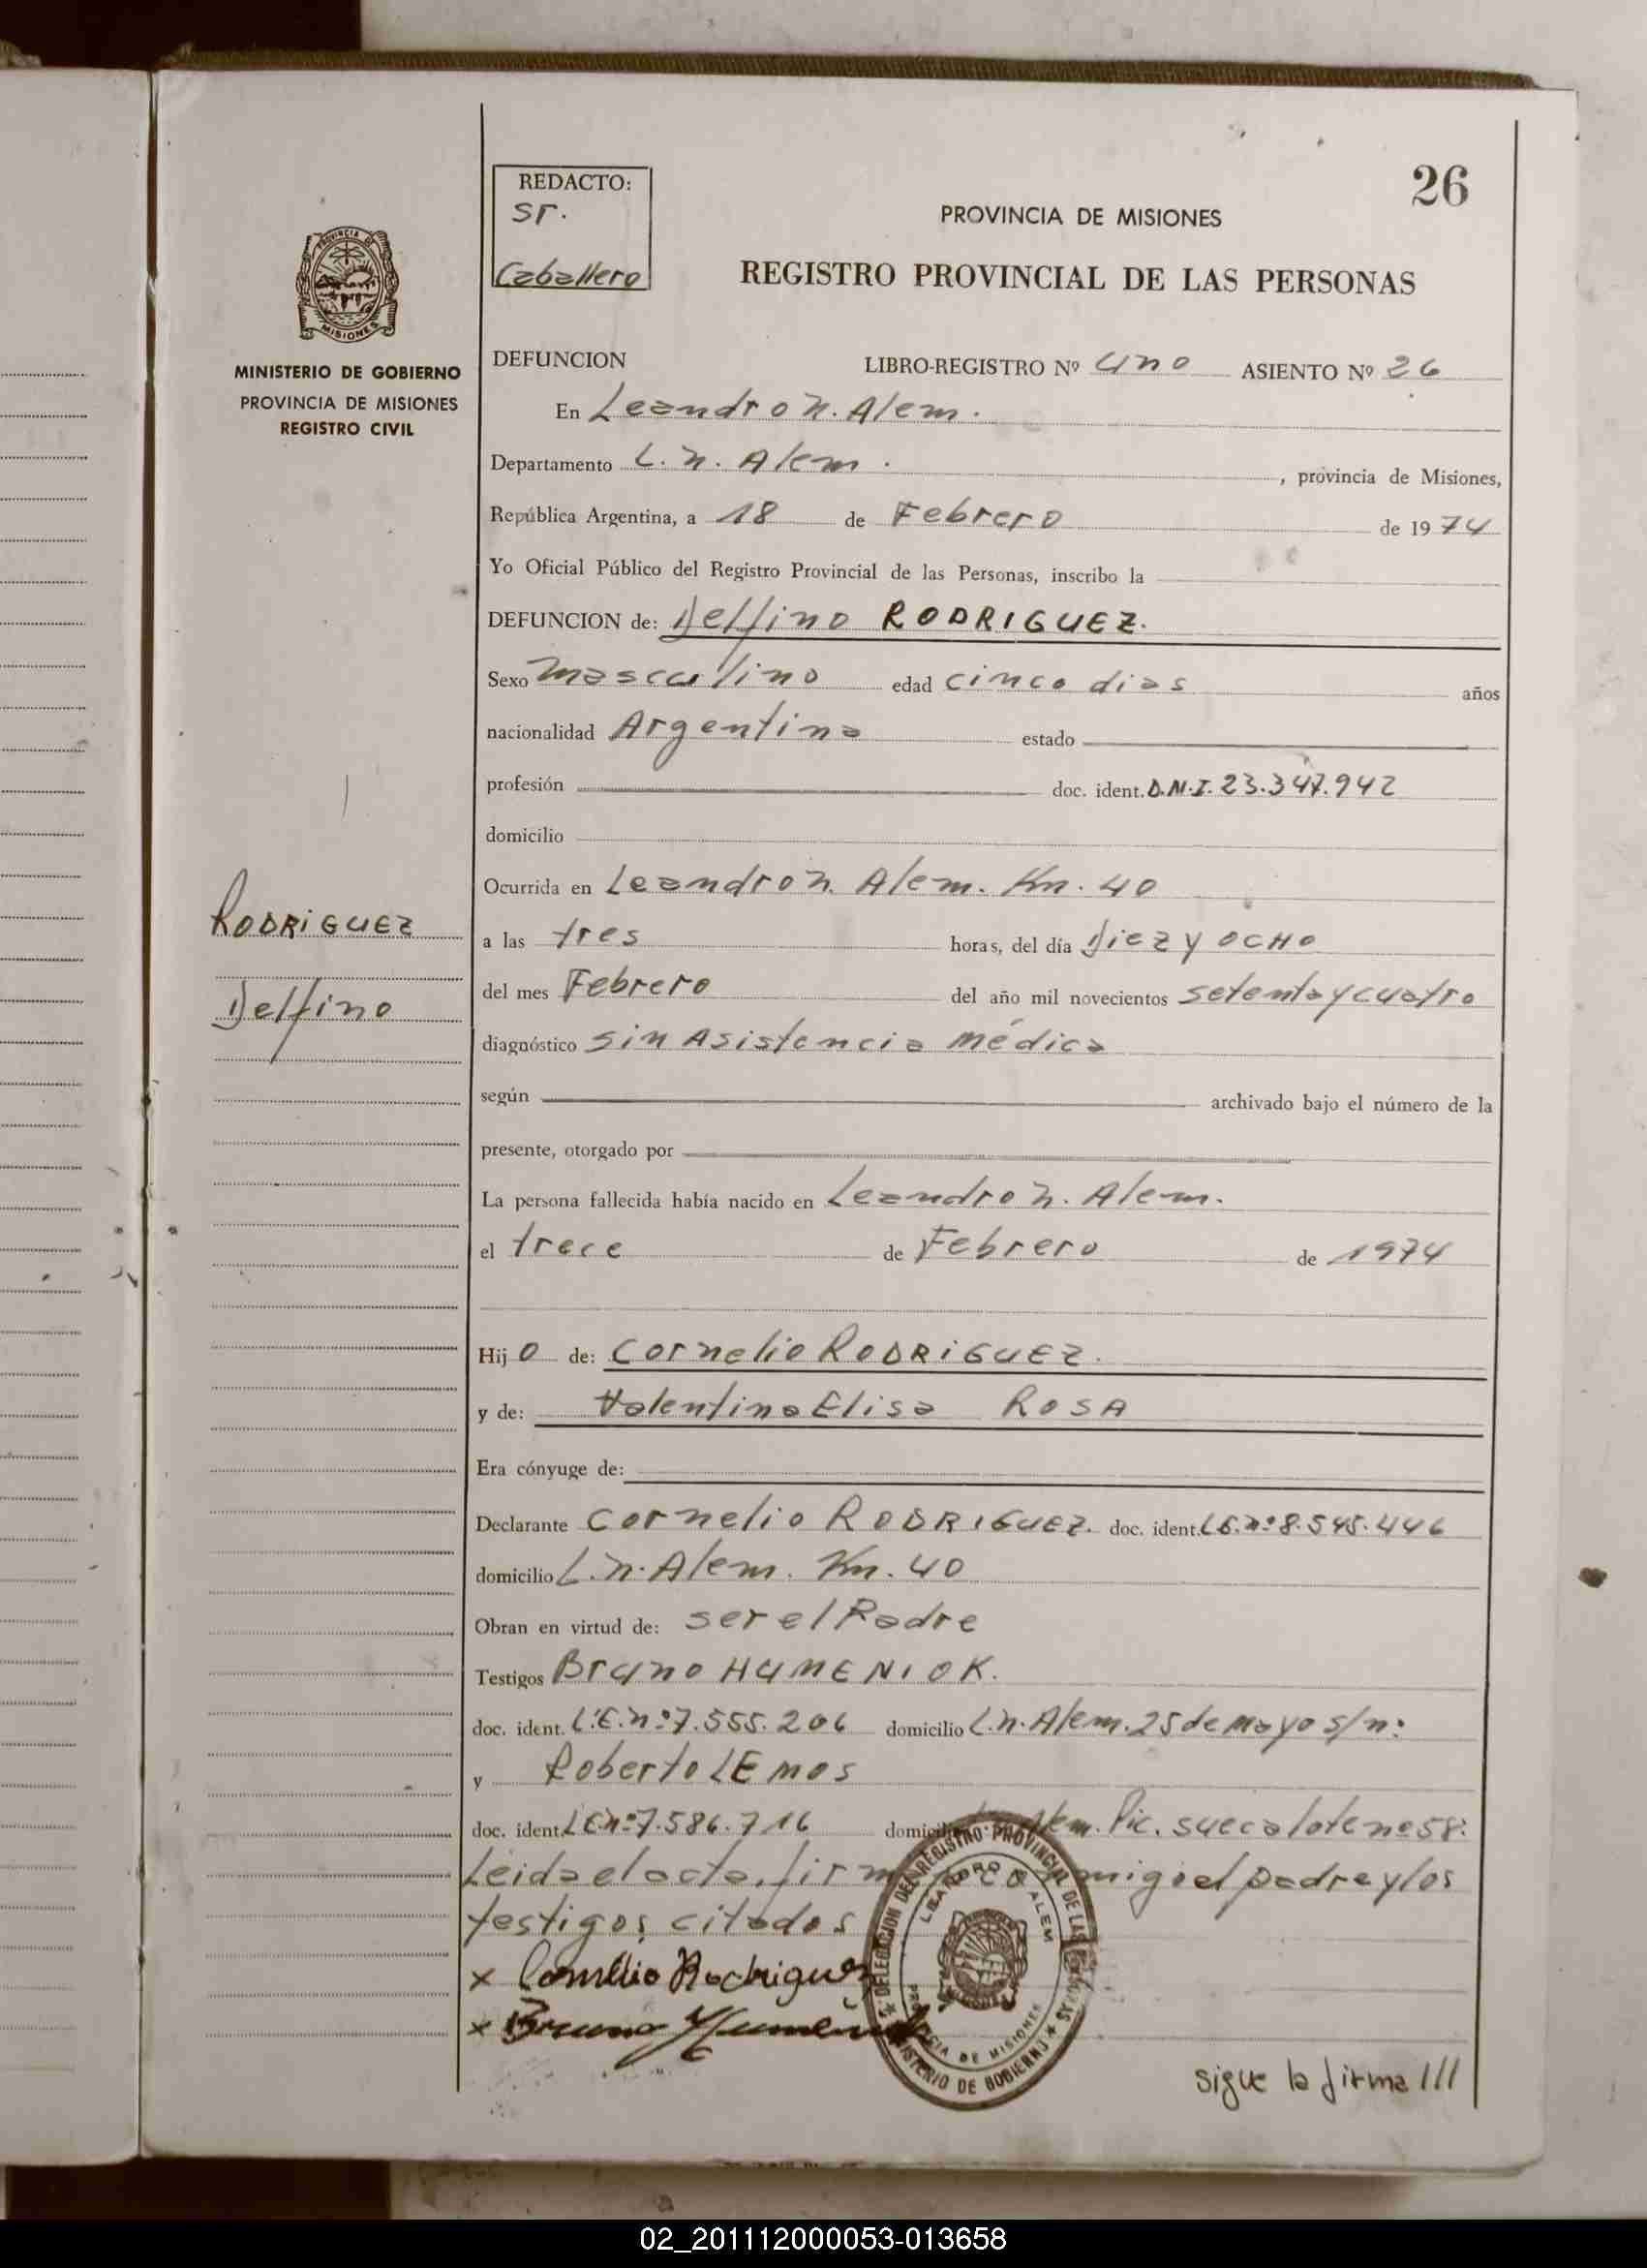 26
REDACTO:
Sr.
Caballero
PROVINCIA DE MISIONES
REGISTRO PROVINCIAL DE LAS PERSONAS
PROVINCIA DE
MISIONES
MINISTERIO DE GOBIERNO
PROVINCIA DE MISIONES
REGISTRO CIVIL
DEFUNCION LIBRO-REGISTRO Nº uno ASIENTO Nº 26
En Leandro N. Alem.
Departamento L. N. Alem. , provincia de Misiones,
República Argentina, a 18 de Febrero de 1974
Yo Oficial Público del Registro Provincial de las Personas, inscribo la
DEFUNCION de: Delfino RODRIGUEZ.
Sexo masculino edad cinco dias años
nacionalidad Argentina estado
profesión doc. ident. D.N.I. 23.347.942
domicilio
Ocurrida en Leandro N. Alem. Km. 40
a las tres horas, del día Diez y OCHO
del mes Febrero del año mil novecientos setenta y cuatro
diagnóstico sin Asistencia médica
según archivado bajo el número de la
presente, otorgado por
La persona fallecida había nacido en Leandro N. Alem.
el trece de Febrero de 1974
RODRIGUEZ
Delfino
Hijo de: Cornelio RODRIGUEZ.
y de: Valentina Elisa ROSA
Era cónyuge de:
Declarante Cornelio RODRIGUEZ. doc. ident. L.E. Nº 8.545.446
domicilio L. N. Alem. Km. 40
Obran en virtud de: ser el Padre
Testigos Bruno HUMENIOK.
doc. ident. L.E. Nº 7.555.206 domicilio L. N. Alem. 25 de mayo s/nº
y Roberto LEMOS
doc. ident. L.E. Nº 7.586.716 Pic. sueca lote nº 58.
Leida el acta, migo el padre y los
testigos citados
x Cornelio Rodriguez
x Bruno
DELEGACION DEL REGISTRO PROVINCIAL DE LAS PERSONAS
LEANDRO N. ALEM
PROVINCIA DE MISIONES
MINISTERIO DE GOBIERNO
sigue la firma ///
02_201112000053-013658